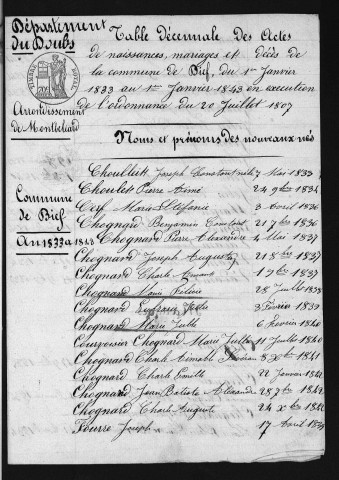 Département
du Doubs
Arrondissement
de Montbéliard
Commune
de Bief
An 1833 a 1843
Table Décennale des Actes
de naissances, mariages et décès de
la commune de Bief, du 1er Janvier
1833 au 1er Janvier 1843 en execution
de l'ordonnance du 20 Juillet 1807
Noms et prénoms des nouveaux nés
Joseph 7 Mai 1833
Choulet Pierre Aimé 24 9bre 1834
Marie Stéfanie 3 Avril 1836
Chognard Benjamin Constant 21 7bre 1836
Chognard Pierre Alexandre 4 Mai 1837
Chognard Joseph Auguste 21 8bre 1837
Chognard Charle 1 9bre 1837
Chognard Marie 28 Juillet 1838
Chognard 3 Février 1839
Chognard Marie Julle 6 Fevrier 1840
Courvoisier Chognard Marie Julle 11 Juillet 1840
Chognard Charle Aimable 8 Xbre 1841
Chognard Charle 22 Janvier 1842
Chognard Jean Batiste Alexandre 28 7bre 1842
Chognard Charle Auguste 24 Xbre 1842
Fourre Joseph 17 Avril 1839